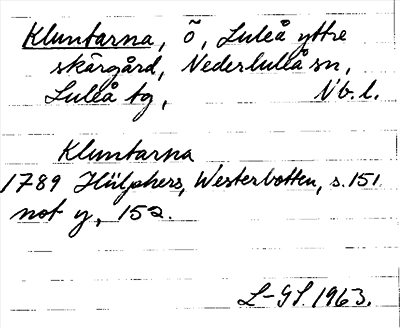 Kluntarna, ö, Luleå yttre
skärgård, Nederluleå sn,
Luleå tg, Nb. l.
Kluntarna
1789 Hülphers, Westerbotten, s. 151
not y, 152.
L-GL. 1963.